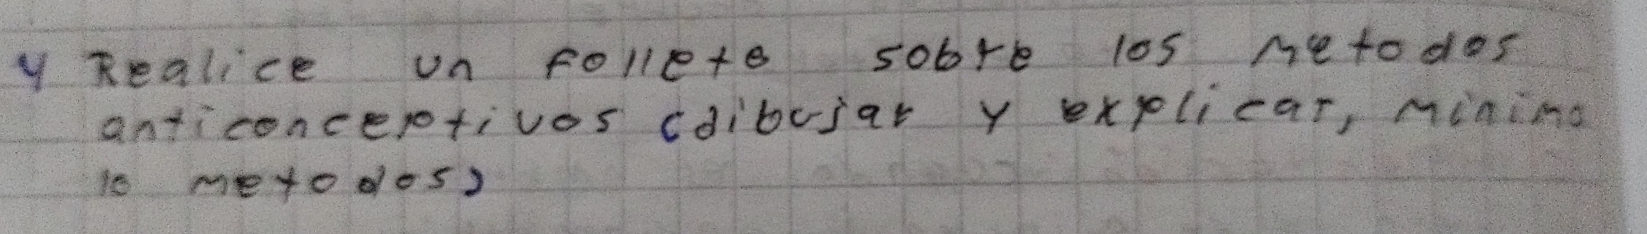 4 Realice un folleto sobre los metodos
anticonceptivos (dibujar y explicar, minimo
10 metodos)